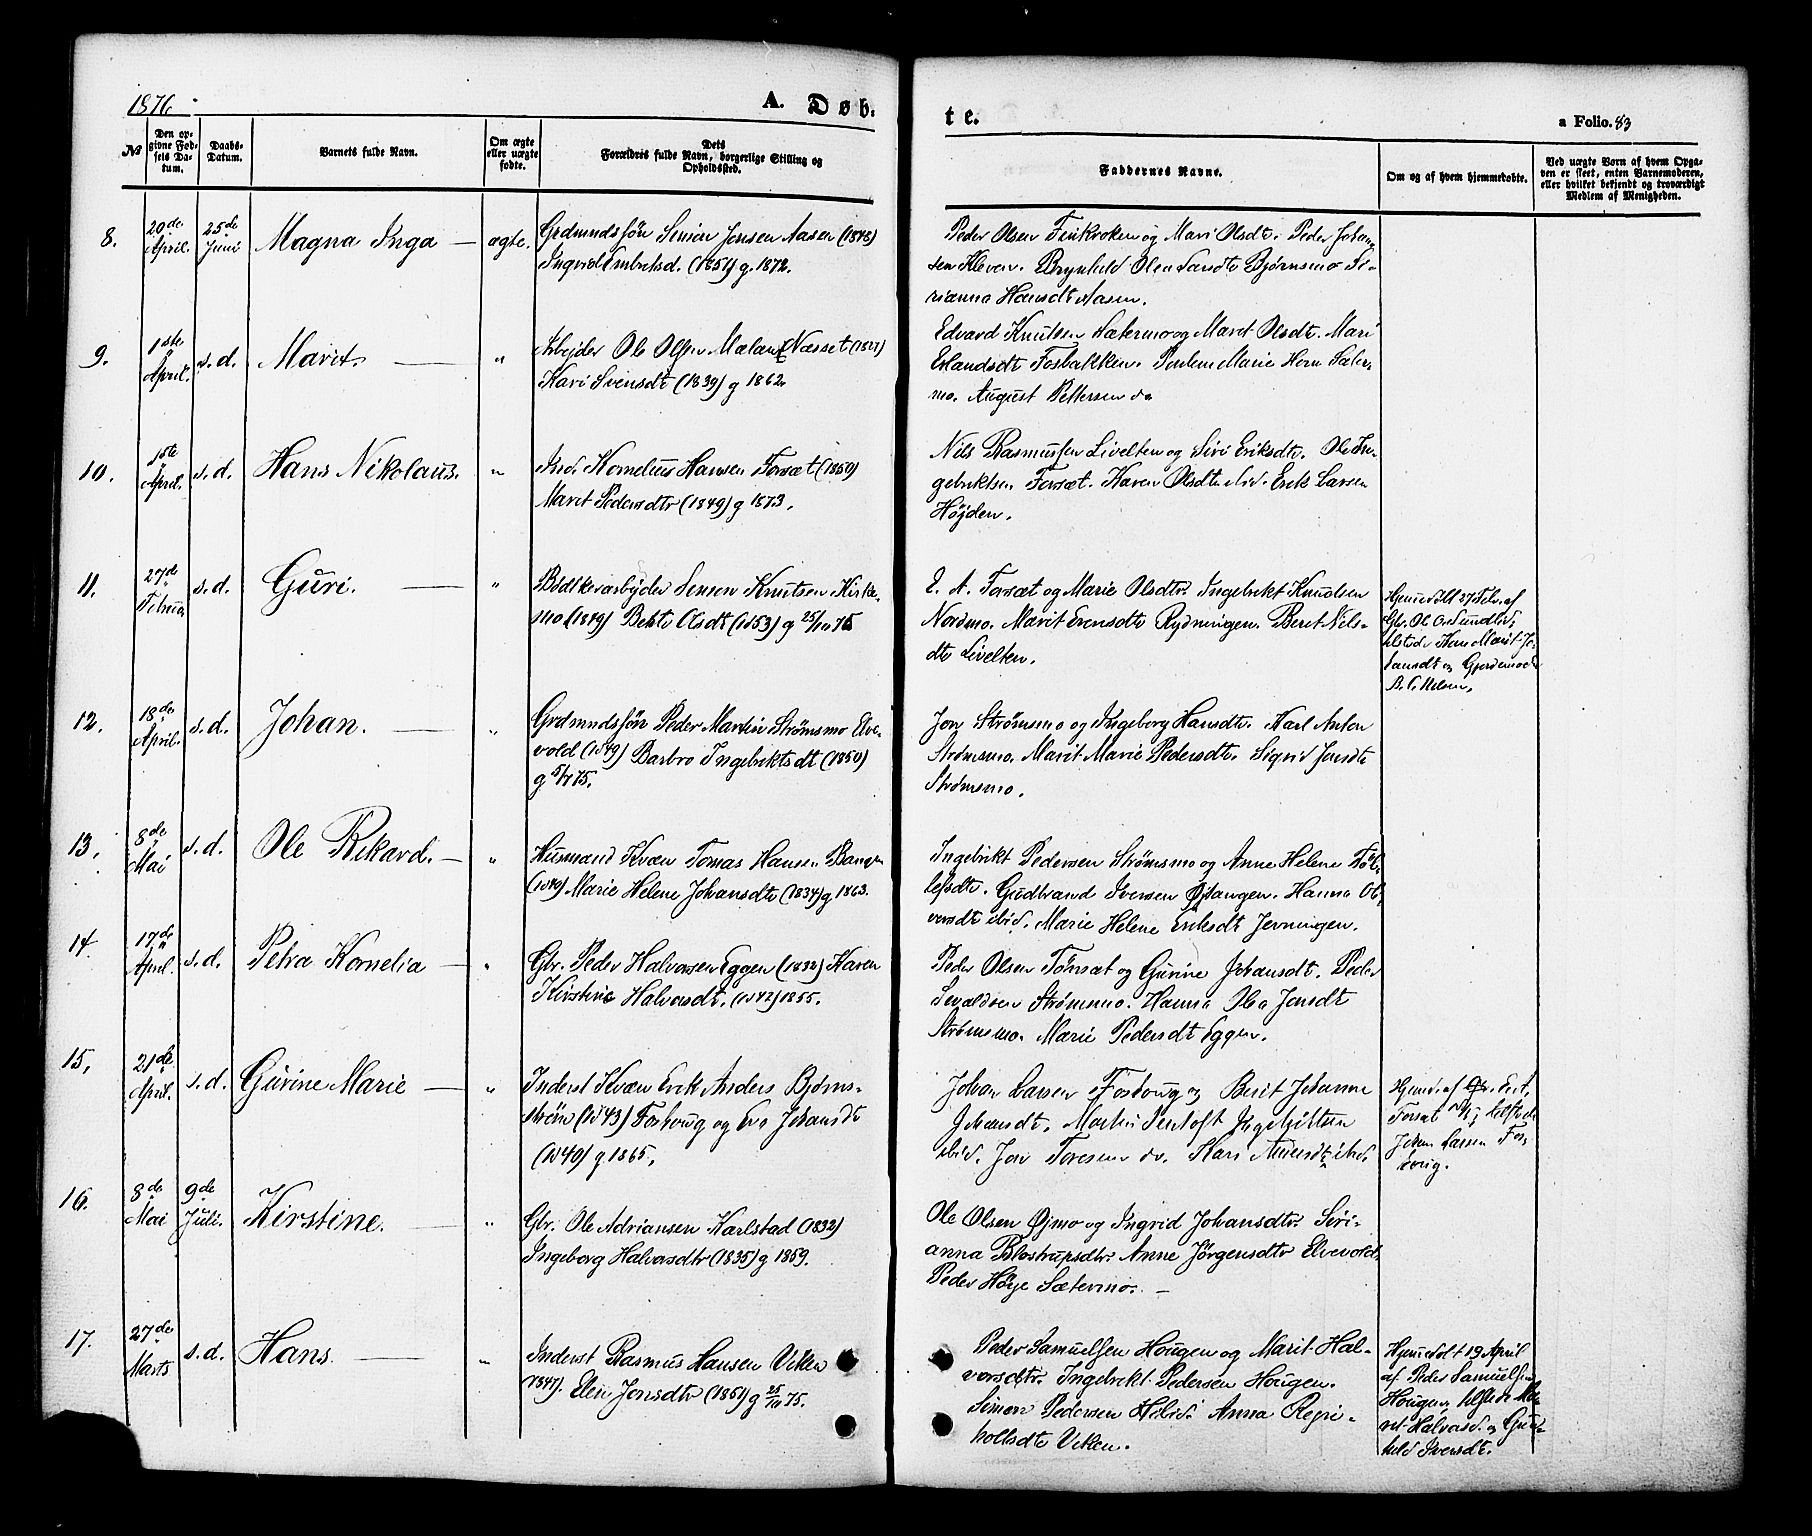 1876
A. Døb-
te.
a Folio. 83
No
Den op-
givne Fød-
sels Da-
tum.
Daabs-
Datum.
Barnets fulde Navn.
Om ægte
eller uægte
fødte.
Dets
Forældres fulde Navn, borgerlige Stilling og
Opholdssted.
Faddernes Navne.
Om og af hvem hjemmedøbte.
Ved uægte Børn af hvem Opga-
ven er skeet, enten Barnemoderen,
eller hvilket bekjendt og troværdigt
Medlem af Menigheden.
8.
20de
April.
25de
Juni
Magna Inga —
ægte.
Grdmndssøn Simon Jensen Aasen (1848)
Ingrid Embretsd. (1851) g. 1872.
Peder Olsen Finkroken og Mari Olsdt. Peder Johan-
sen Kleven. Brynhild Olea Larsdt Bjørnsmo
Hansdt Aasen.
9.
1ste
April.
s. d.
Marit. —
"
Arbejder Ole Olsen Mælan Næsset
Kari Svensdt (1839) g 1862.
Edvard Knutsen Sætermo og Maret Olsdt. Mari
Erlandsdt Fosbakken. Marie Hern Sæter-
mo. August Pettersen do
10.
1ste
April.
s. d.
Hans Nikolaus.
"
Ind. Kornelius Hansen Forsæt (1850)
Maret Pedersdtr (1849) g 1873.
Nils Rasmussen Livelten og Siri Eriksdt. Ole In-
gebriktsen Forsæt. Karen Olsdt ibid. Erik Larsen
Højden.
11.
27de
Februar
s. d.
Guri. —
"
Simon Knutsen Kirke-
mo (1849) Olsdt (1853) g 25/10 75
E. A. Forsæt og Marie Olsdtr. Ingebrikt Knudsen
Nordmo. Marit Evensdtr Rydningen. Beret Nils-
dtr Livelten.
Hjemmedøbt 27 Febr. af
Gbr. Ole
tilstede Marit Jo-
hansdt og
12.
18de
April.
s. d.
Johan. —
"
Grdmndssøn Peder Martin Strømsmo Elve-
vold (1849) Barbro Ingebriktsdt (1850)
g 5/7 75.
Jon Strømsmo og Ingeborg Hansdtr. Karl Anton
Strømsmo. Marit Marie Pedersdtr. Sigrid Jonsdt
Strømsmo.
13.
8de
Mai
s. d.
Ole Rikard. —
"
Husmand Kvæn Tomas Hansen
Marie Helene Johansdtr (1834) g 1863.
Ingebrikt Pedersen Strømsmo og Anne Helene Tol-
lefsdtr. Gudbrand Iversen Hanna Ol-
versdt ibid. Marie Helene Eriksdt
14.
17de
April.
s. d.
Petra Kornelia —
"
Gbr. Peder Halvorsen Eggen (1832) Karen
Kirstine Halvorsdt. (1842) 1855.
Peder Olsen Forsæt og Gurine Johansdt. Peder
Sevaldsen Strømsmo. Hanna Olea Jonsdt
Strømsmo. Marie Pedersdt Eggen.
15.
21de
April.
s. d.
Gurine Marie —
"
Inderst Kvæn Erik Anders Bjørns-
strøm (1843) Foshoug og Eva Johansdt
(1840) g 1865.
Johan Larsen Foshoug og Berit Johanne
Johansdt. Martin
ibid. Jon Toresen do. Kari ibid.
Hjemd. af
Forsæt tilstede
Johan Larsen Fos-
houg.
16.
8de
Mai
9de
Juli.
Kirstine. —
"
Gbr. Ole Adriansen Karlstad (1832)
Ingeborg Halvorsdtr (1835) g 1859.
Ole Olsen Øjmo og Ingrid Johansdtr. Siri-
anna Blostrupsdtr. Anne Jörgensdtr Elvevold.
Peder Höye Sætermo. —
17.
27de
Marts
s. d.
Hans. —
"
Inderst Rasmus Hansen Viken
1847). Elen Jonsdtr (1851) g 25/10 75.
Peder Samuelsen Hougen og Marit Hal-
vorsdtr. Ingebrikt Pedersen Hougen.
Simon Pedersen ibid. Anna
Viken.
Hjemmedøbt 19 April
af Peder Samuelsen
Hougen, tilstede Ma-
rit Halvorsd. og Gun-
hild Iversdt.